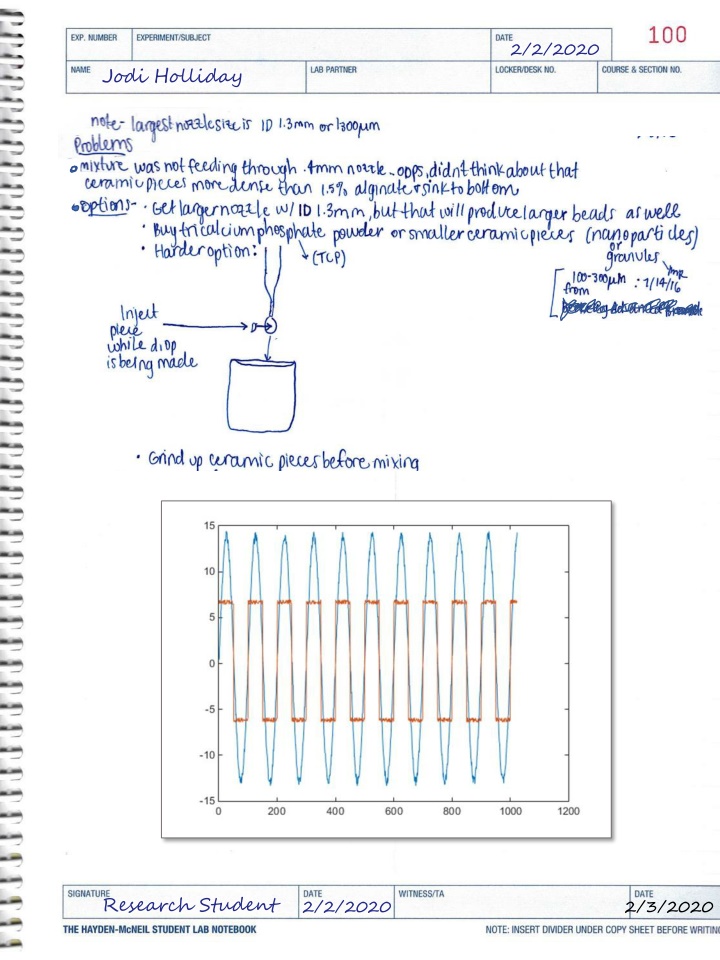 EXP. NUMBER EXPERIMENT/SUBJECT DATE 2/2/2020 100
NAME Jodi Holliday LAB PARTNER LOCKER/DESK NO. COURSE & SECTION NO.
note- largest nozzle size is ID 1.3mm or 1300µm
Problems
mixture was not feeding through .4mm nozzle - opps, didn't think about that
ceramic pieces more dense than 1.5% alginate & sink to bottom
options- · Get larger nozzle w/ ID 1.3mm, but that will produce larger beads as well
· Buy tricalcium phosphate powder or smaller ceramic pieces (nanoparticles)
(TCP)
or
granules
· Harder option:
100-300µm : 7/14/16
from
Inject
piece
while drop
is being made
· Grind up ceramic pieces before mixing
15
10
5
0
-5
-10
-15
0 200 400 600 800 1000 1200
SIGNATURE Research Student DATE 2/2/2020 WITNESS/TA DATE 2/3/2020
THE HAYDEN-McNEIL STUDENT LAB NOTEBOOK NOTE: INSERT DIVIDER UNDER COPY SHEET BEFORE WRITING